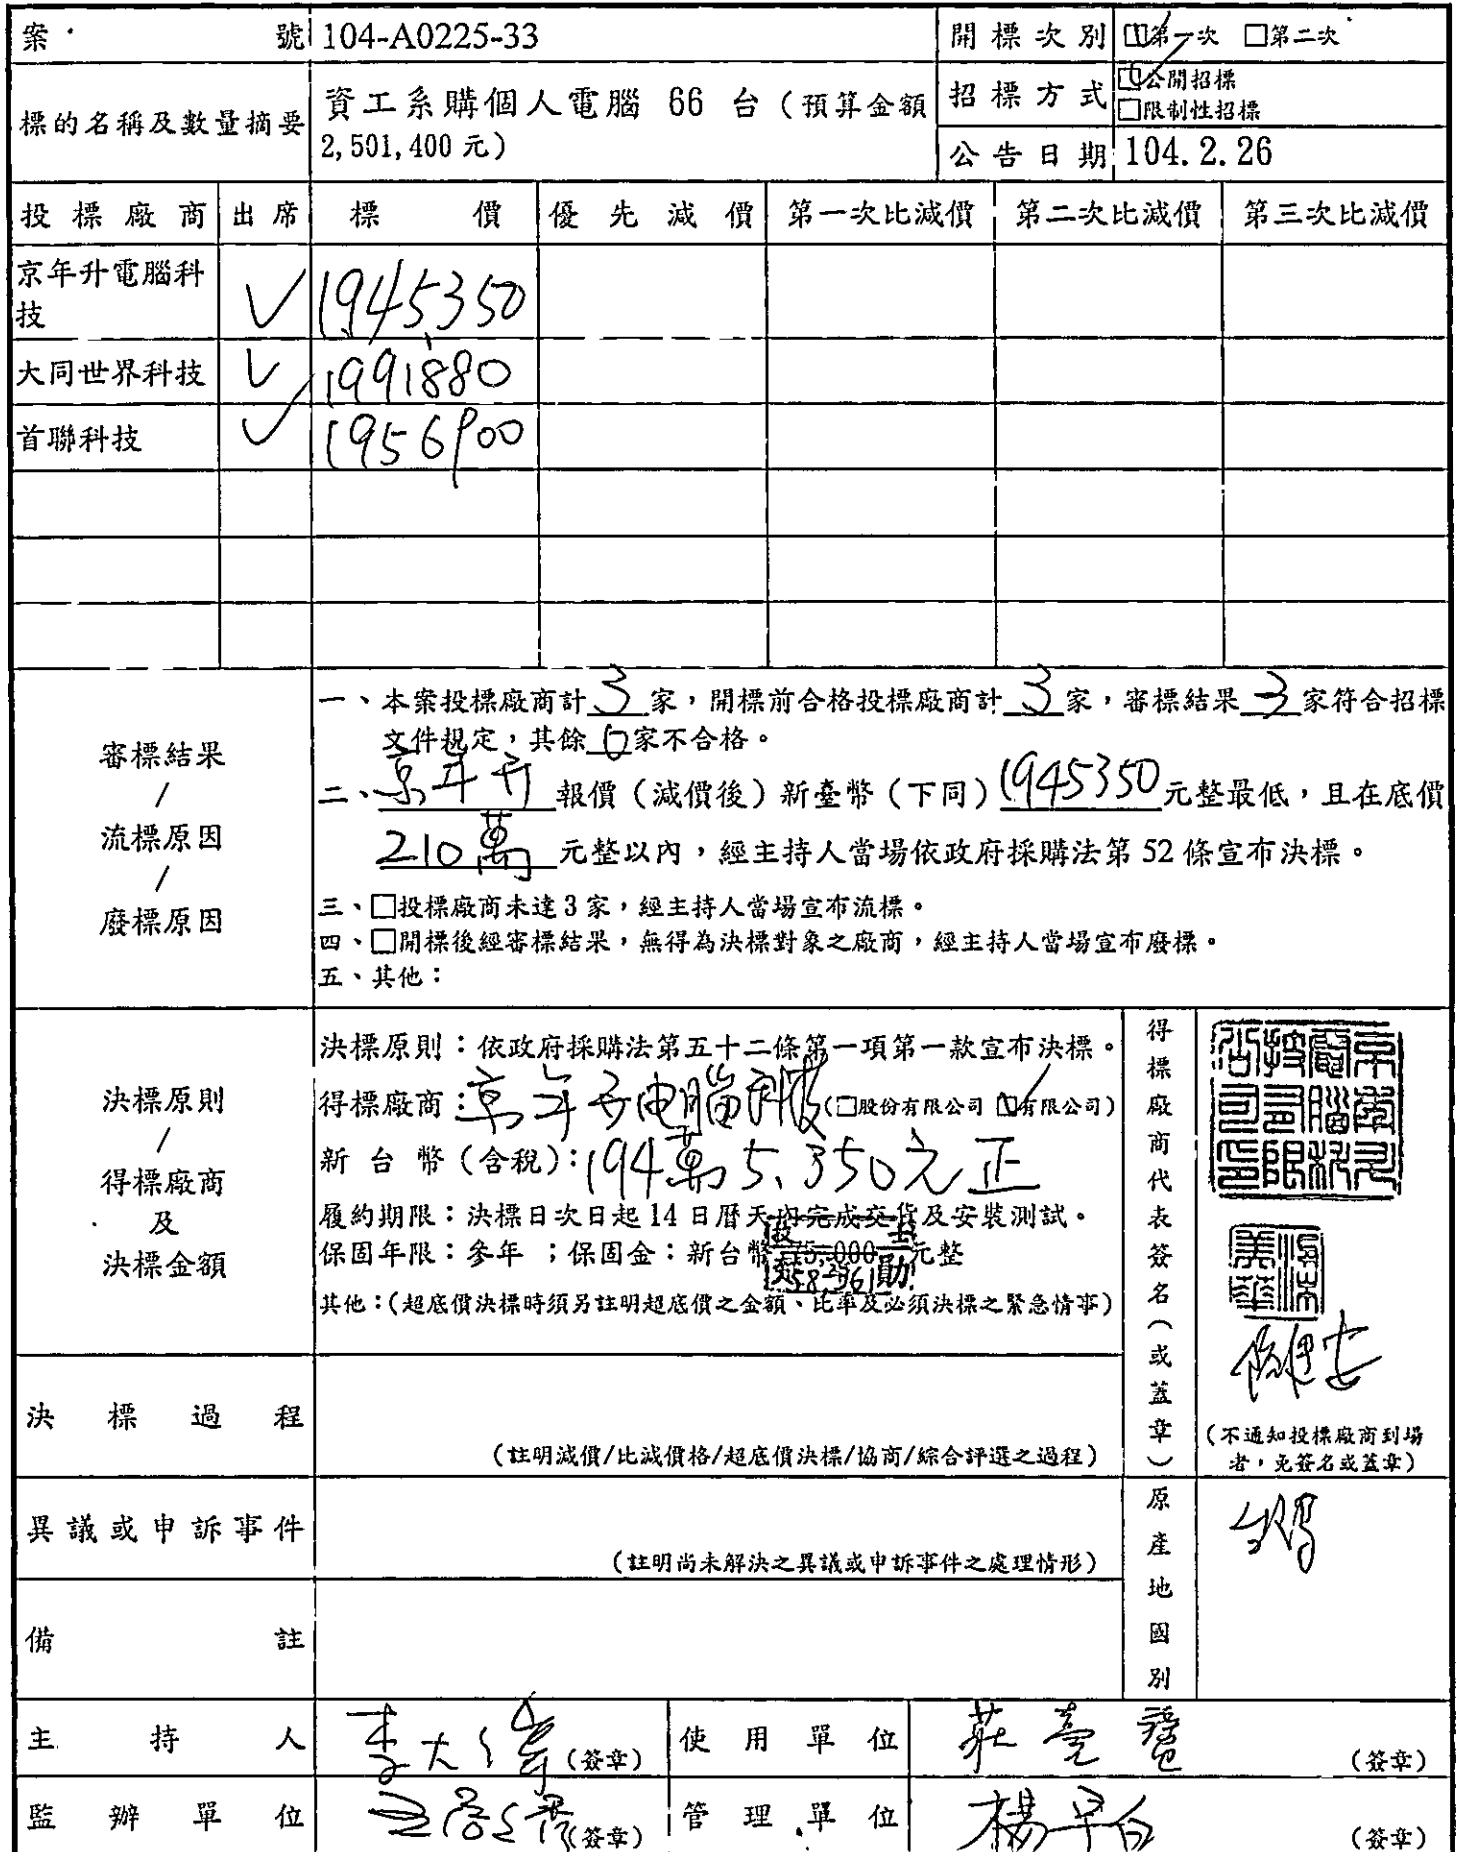 案 號 104-A0225-33 開標次別 ☑第一次 □第二次
標的名稱及數量摘要 資工系購個人電腦 66 台(預算金額
2,501,400 元)
招標方式 ☑公開招標
□限制性招標
公告日期 104.2.26
投標廠商 出席 標價 優先減價 第一次比減價 第二次比減價 第三次比減價
京年升電腦科
技 ✓ 1945350
大同世界科技 ✓ 1991880
首聯科技 ✓ 1956900
審標結果
/
流標原因
/
廢標原因
一、本案投標廠商計 3 家,開標前合格投標廠商計 3 家,審標結果 3 家符合招標
文件規定,其餘 0 家不合格。
二、京年升 報價(減價後)新臺幣(下同)1945350 元整最低,且在底價
210萬 元整以內,經主持人當場依政府採購法第 52 條宣布決標。
三、□投標廠商未達 3 家,經主持人當場宣布流標。
四、□開標後經審標結果,無得為決標對象之廠商,經主持人當場宣布廢標。
五、其他:
決標原則
/
得標廠商
及
決標金額
決標原則:依政府採購法第五十二條第一項第一款宣布決標。
得標廠商:京年升电腦科技(□股份有限公司 ☑有限公司)
新台幣(含稅):194萬5、350元正
履約期限:決標日次日起 14 日曆天內完成交貨及安裝測試。
保固年限:參年 ;保固金:新台幣 元整
其他:(超底價決標時須另註明超底價之金額、比率及必須決標之緊急情事)
得標廠商代表簽名(或蓋章)
(不通知投標廠商到場
者,免簽名或蓋章)
決標過程
(註明減價/比減價格/超底價決標/協商/綜合評選之過程)
異議或申訴事件
(註明尚未解決之異議或申訴事件之處理情形)
原產地國別
備註
主持人 (簽章) 使用單位 (簽章)
監辦單位 (簽章) 管理單位 (簽章)